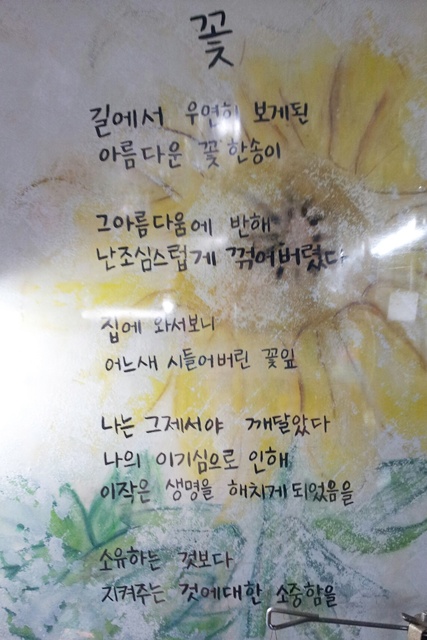 꽃
길에서 우연히 보게된
아름다운 꽃 한송이
그아름다움에 반해
난조심스럽게 꺾어버렸다
집에 와서보니
어느새 시들어버린 꽃잎
나는 그제서야 깨달았다
나의 이기심으로 인해
이작은 생명을 해치게되었음을
소유하는 것보다
지켜주는 것에대한 소중함을